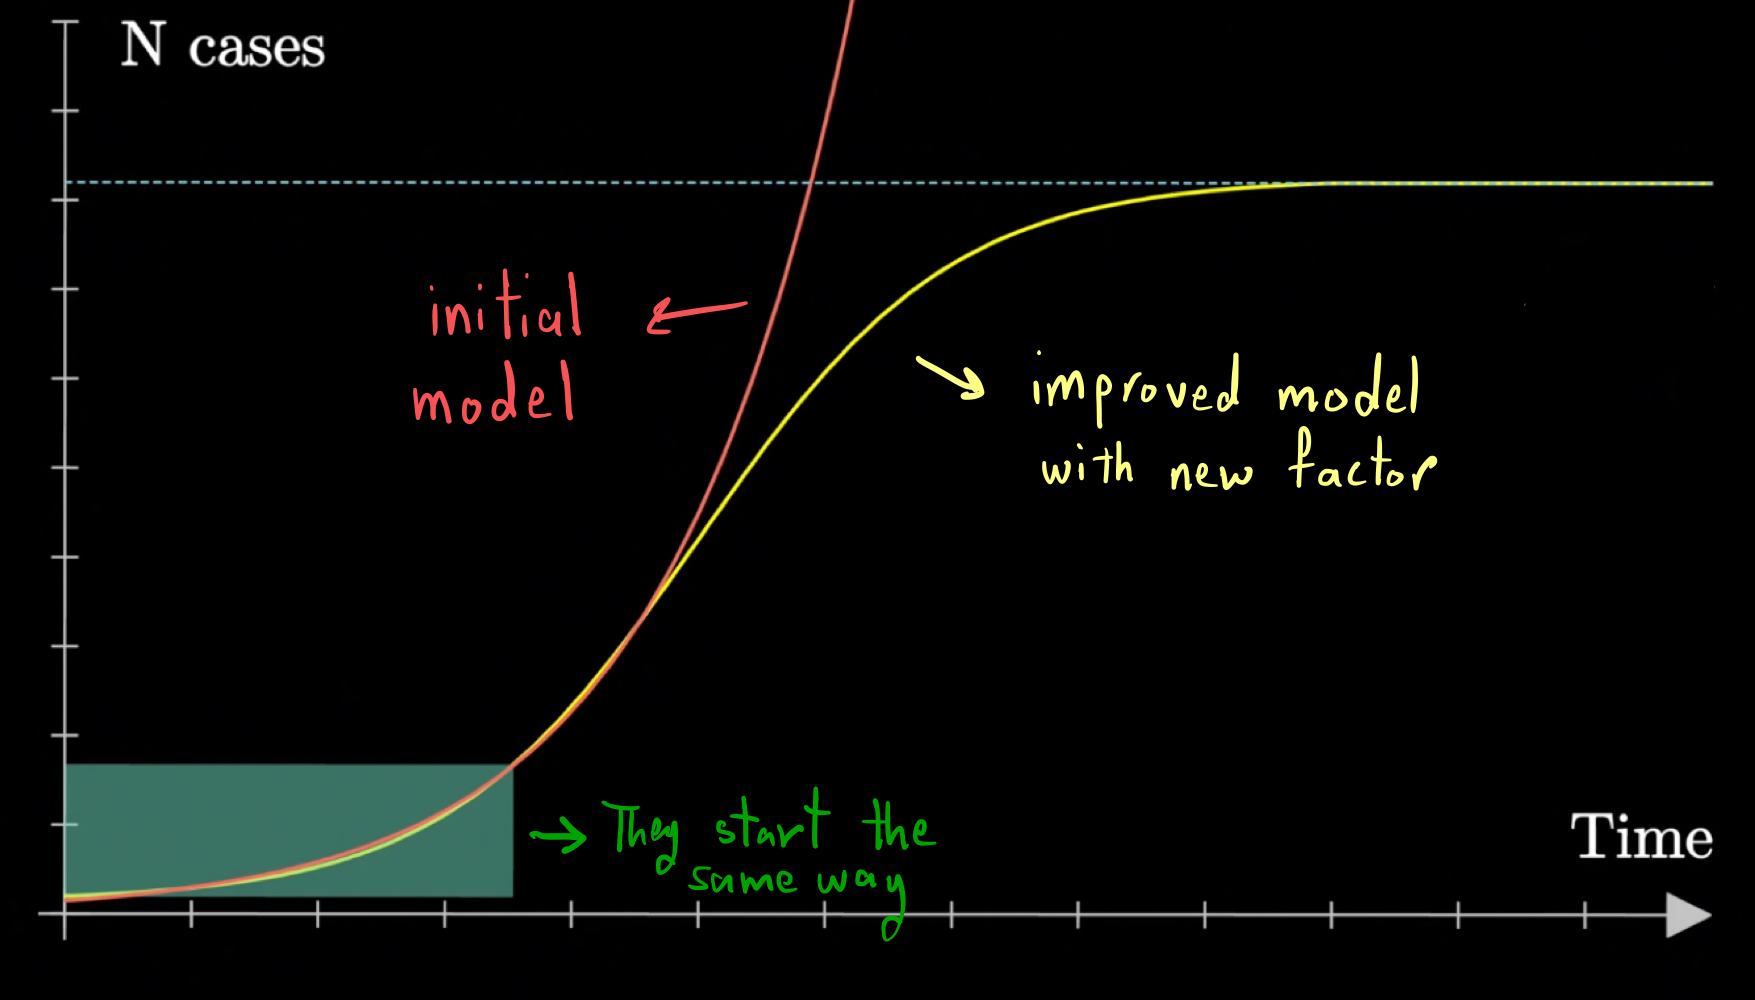 N cases
initial
model
improved model
with new factor
They start the
same way
Time